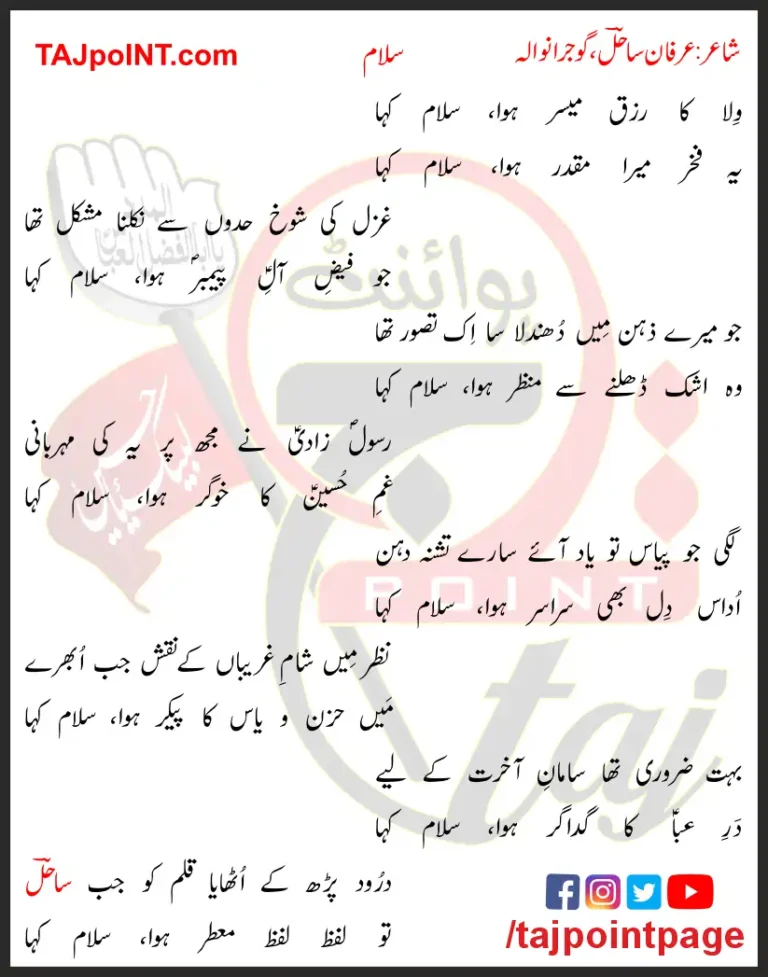 TAJpoiNT.com
سلام
شاعر: عرفان ساحلؔ، گوجرانوالہ
وِلا کا رزق میسر ہوا، سلام کہا
یہ فخر میرا مقدر ہوا، سلام کہا
غزل کی شوخ حدوں سے نکلنا مشکل تھا
جو فیضِ آلِؑ پیمبرؐ ہوا، سلام کہا
جو میرے ذہن مِیں دُھندلا سا اِک تصور تھا
وہ اشک ڈھلنے سے منظر ہوا، سلام کہا
رسولؐ زادیؑ نے مجھ پر یہ کی مہربانی
غمِ حُسینؑ کا خوگر ہوا، سلام کہا
لگی جو پیاس تو یاد آئے سارے تشنہ دہن
اُداس دِل بھی سراسر ہوا، سلام کہا
نظر مِیں شامِ غریباں کے نقش جب اُبھرے
مَیں حزن و یاس کا پیکر ہوا، سلام کہا
بہت ضروری تھا سامانِ آخرت کے لیے
دَرِ عباؑ کا گداگر ہوا، سلام کہا
درُود پڑھ کے اُٹھایا قلم کو جب ساحلؔ
تو لفظ لفظ معطر ہوا، سلام کہا
/tajpointpage
پوائنٹ
تاج
POINT
taj
لبیک یا حسینؑ